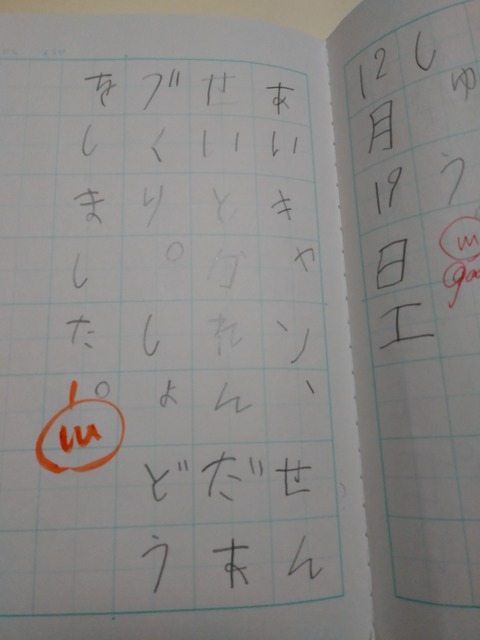 しゅう
12月19日工
あいキャン、せん
せいとカれんだあ
づくり。しょどう
をしました。